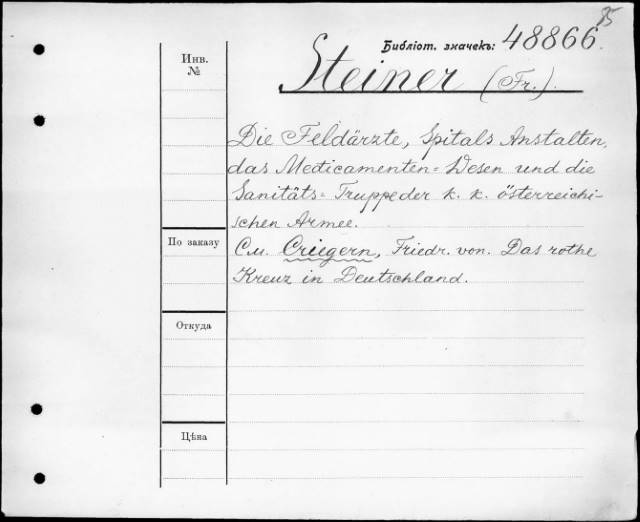 85
Библіот. значекъ: 48866.
Инв.
№
Steiner (Fr.).
Die Feldärzte, Spitals Anstalten,
das Medicamenten=Wesen und die
Sanitäts=Truppe der k. k. österreichi-
schen Armee.
По заказу
См. Criegern, Friedr. von. Das rothe
Kreuz in Deutschland.
Откуда
Цѣна